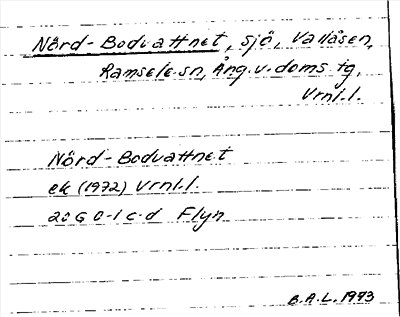 Nörd-Bodvattnet, sjö, Vallåsen,
Ramsele sn, Ång.v.doms tg,
Vrnl.l.
Nörd-Bodvattnet
ek (1972) Vrnl.l.
20 G 0-1 c-d Flyn
B.A.L. 1973